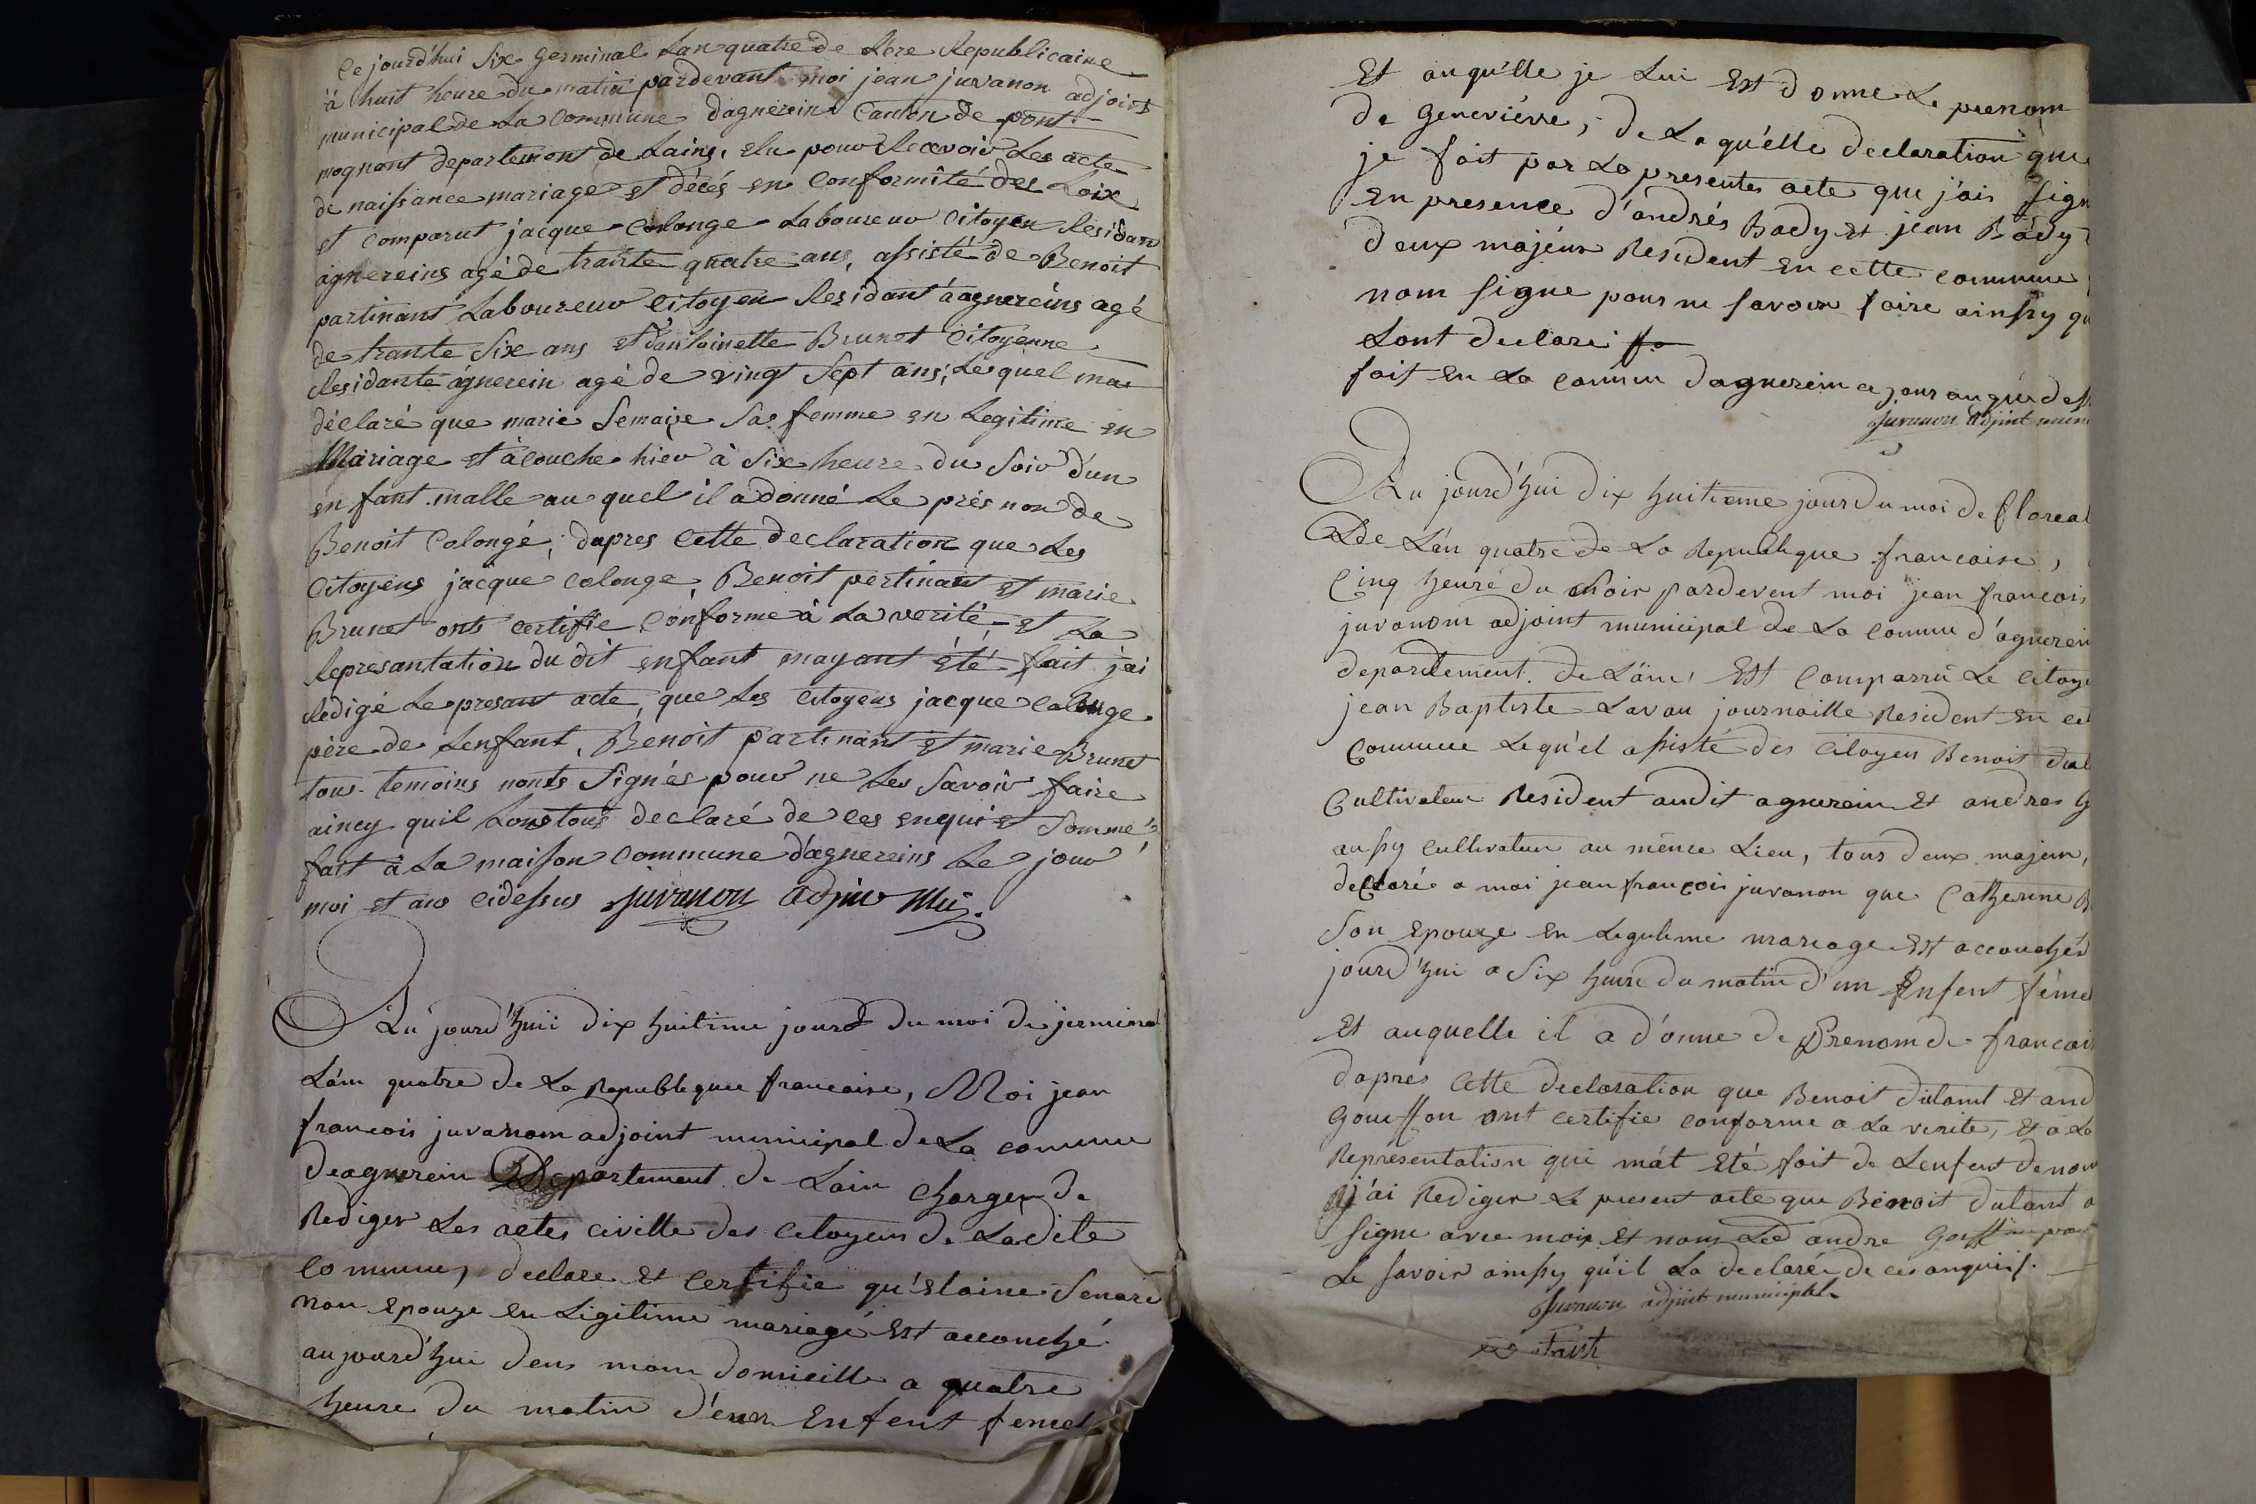 Ce jourd'hui Six Germinal Lan quatre de Lère Republicaine
à huit heure du matin pardevant moi jean juvanon adjoint
municipal de La Commune dagnereins Canton de pont-
nognant departemont de Lains, elu pour Recevoir Les acte
de naissance mariage et décés en Conformité des Loix
et Comparut jacque Colonge Laboureur Citoyen Residan
agnereins agé de trante quatre ans, assisté de Benoit
partinant Laboureur Citoyen Residant à agnereins agé
de trante Six ans et d'antoinette Brunet Citoyenne
Residante agnerein agé de vingt Sept ans, Lesquel ma
déclaré que marie Semaize Sa femme en Legitime en
Mariage et àcouche hier à Six heure du Soir d'un
enfant malle au quel il a donné Le prés non de
Benoit Colongé, dapres Cette declaration que Les
Citoyens jacque Colonge, Benoit pertinant et marie
Brunet onts certifie Conforme à La verité, et La
Represantation du dit enfant mayant été fait jai
Redigé Le presant acte, que Les Citoyens jacque Calonge
père de Lenfant, Benoit partinant et marie Brunet
tous temoins nonts Signés pour ne Les Savoir faire
aincy quil Lons tous declaré de ces enqui et Sommé
fait à La maison Commune d'agnereins Le jour
moi et an cidessus juvanon adjoint Mu.
Au jourd'huii dix huitime jourd du moi de jerminal
L'ám quatre de La Republique francaise, Moi jean
francois juvanom adjoint municipal de La comune
deagnerein Departement de Lain Charger de
Rediger Les actes civille des Citoyens de Ladite
Commune, declare et Certifie qu'Elaine Senare
mon epouze en Ligitime mariagé Est accouché
aujourd'hui dens mom domicille a quatre
heure du matin d'eun Enfent femel
Et auqu'elle je Lui Est donne Le prenom
de Geneviévre, de Laqu'elle declaration que
je fait par La presentes acte que j'ais Sign
en presence d'andrés Bady et jean Bady
deux majeur Resident en cette commune
nom signe pour ne savoir faire ainsy qu
Lont declare fa
fait en La comun dagnerein ce jour an que dess
juvanon adjoint muni
Au jourd'hui dix huitieme jour du moi de floreal
de L'án quatre de La Republique francaise,
Cinq heure du Soir pardevent moi jean francois
juvanom adjoint municipal de La Commu d'agnerein
departement de L'ain, Est Comparru Le citoye
jean Baptiste Lavau journaille Resident en cet
Commune Lequ'el assisté des Citoyen Benoit dul
Cultivateur Resident audit agnerein et andres g
aussy cultivateur au mêmre Lieu, tous deux majeur,
declaré a moi jean françois juvanon que Catherine B
Son epouze en Legitime mariage Est accouchée
jourd'hui a Six heure du matin d'un Enfent feme
Et auquelle il a d'onne de Prenom de francois
dapres Cette declaration que Benoit dulant et and
Gouffon ont certifie conforme a La verite, et a La
Representation qui m'át Eté fait de Lenfent denom
j'ai Rediger Le present acte que Benoit dulant a
signe avec moix et nom Led andre Gouffon pour
Le savoir ainsy qu'il La declarée de ces anquis.
Juvanon adjoint municipal